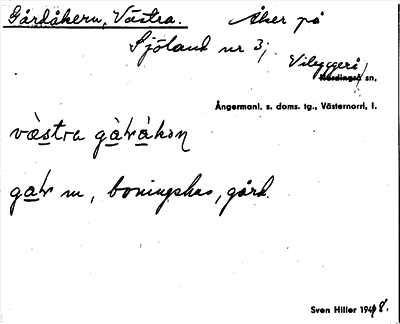 Gårdåkern, Västra. Åker på
Sjöland nr 3,
Vibyggerå
Nordingrå sn,
Ångermanl. s. doms. tg., Västernorrl, l.
västra gàråkən
gar m, boningshus, gård.
Sven Hiller 1948.